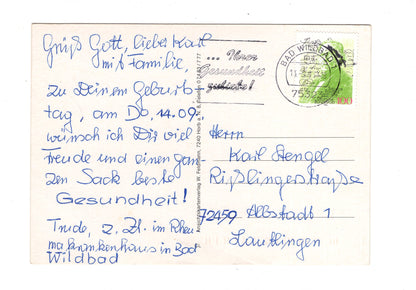 Grüß Gott, lieber Karl
mit Familie,
zu Deinem Geburts-
tag, am Do. 14.09.
wünsch ich Dir viel
Freude und einen gan-
zen Sack beste
Gesundheit!
Trude, z. Zt. im Rheu
makrankenhaus in Bad
Wildbad
... Ihrer
Gesundheit
zuliebe!
BAD WILDBAD
100
Herrn
Karl Stengel
Rißlingerstraße
72459 Albstadt 1
Lautlingen